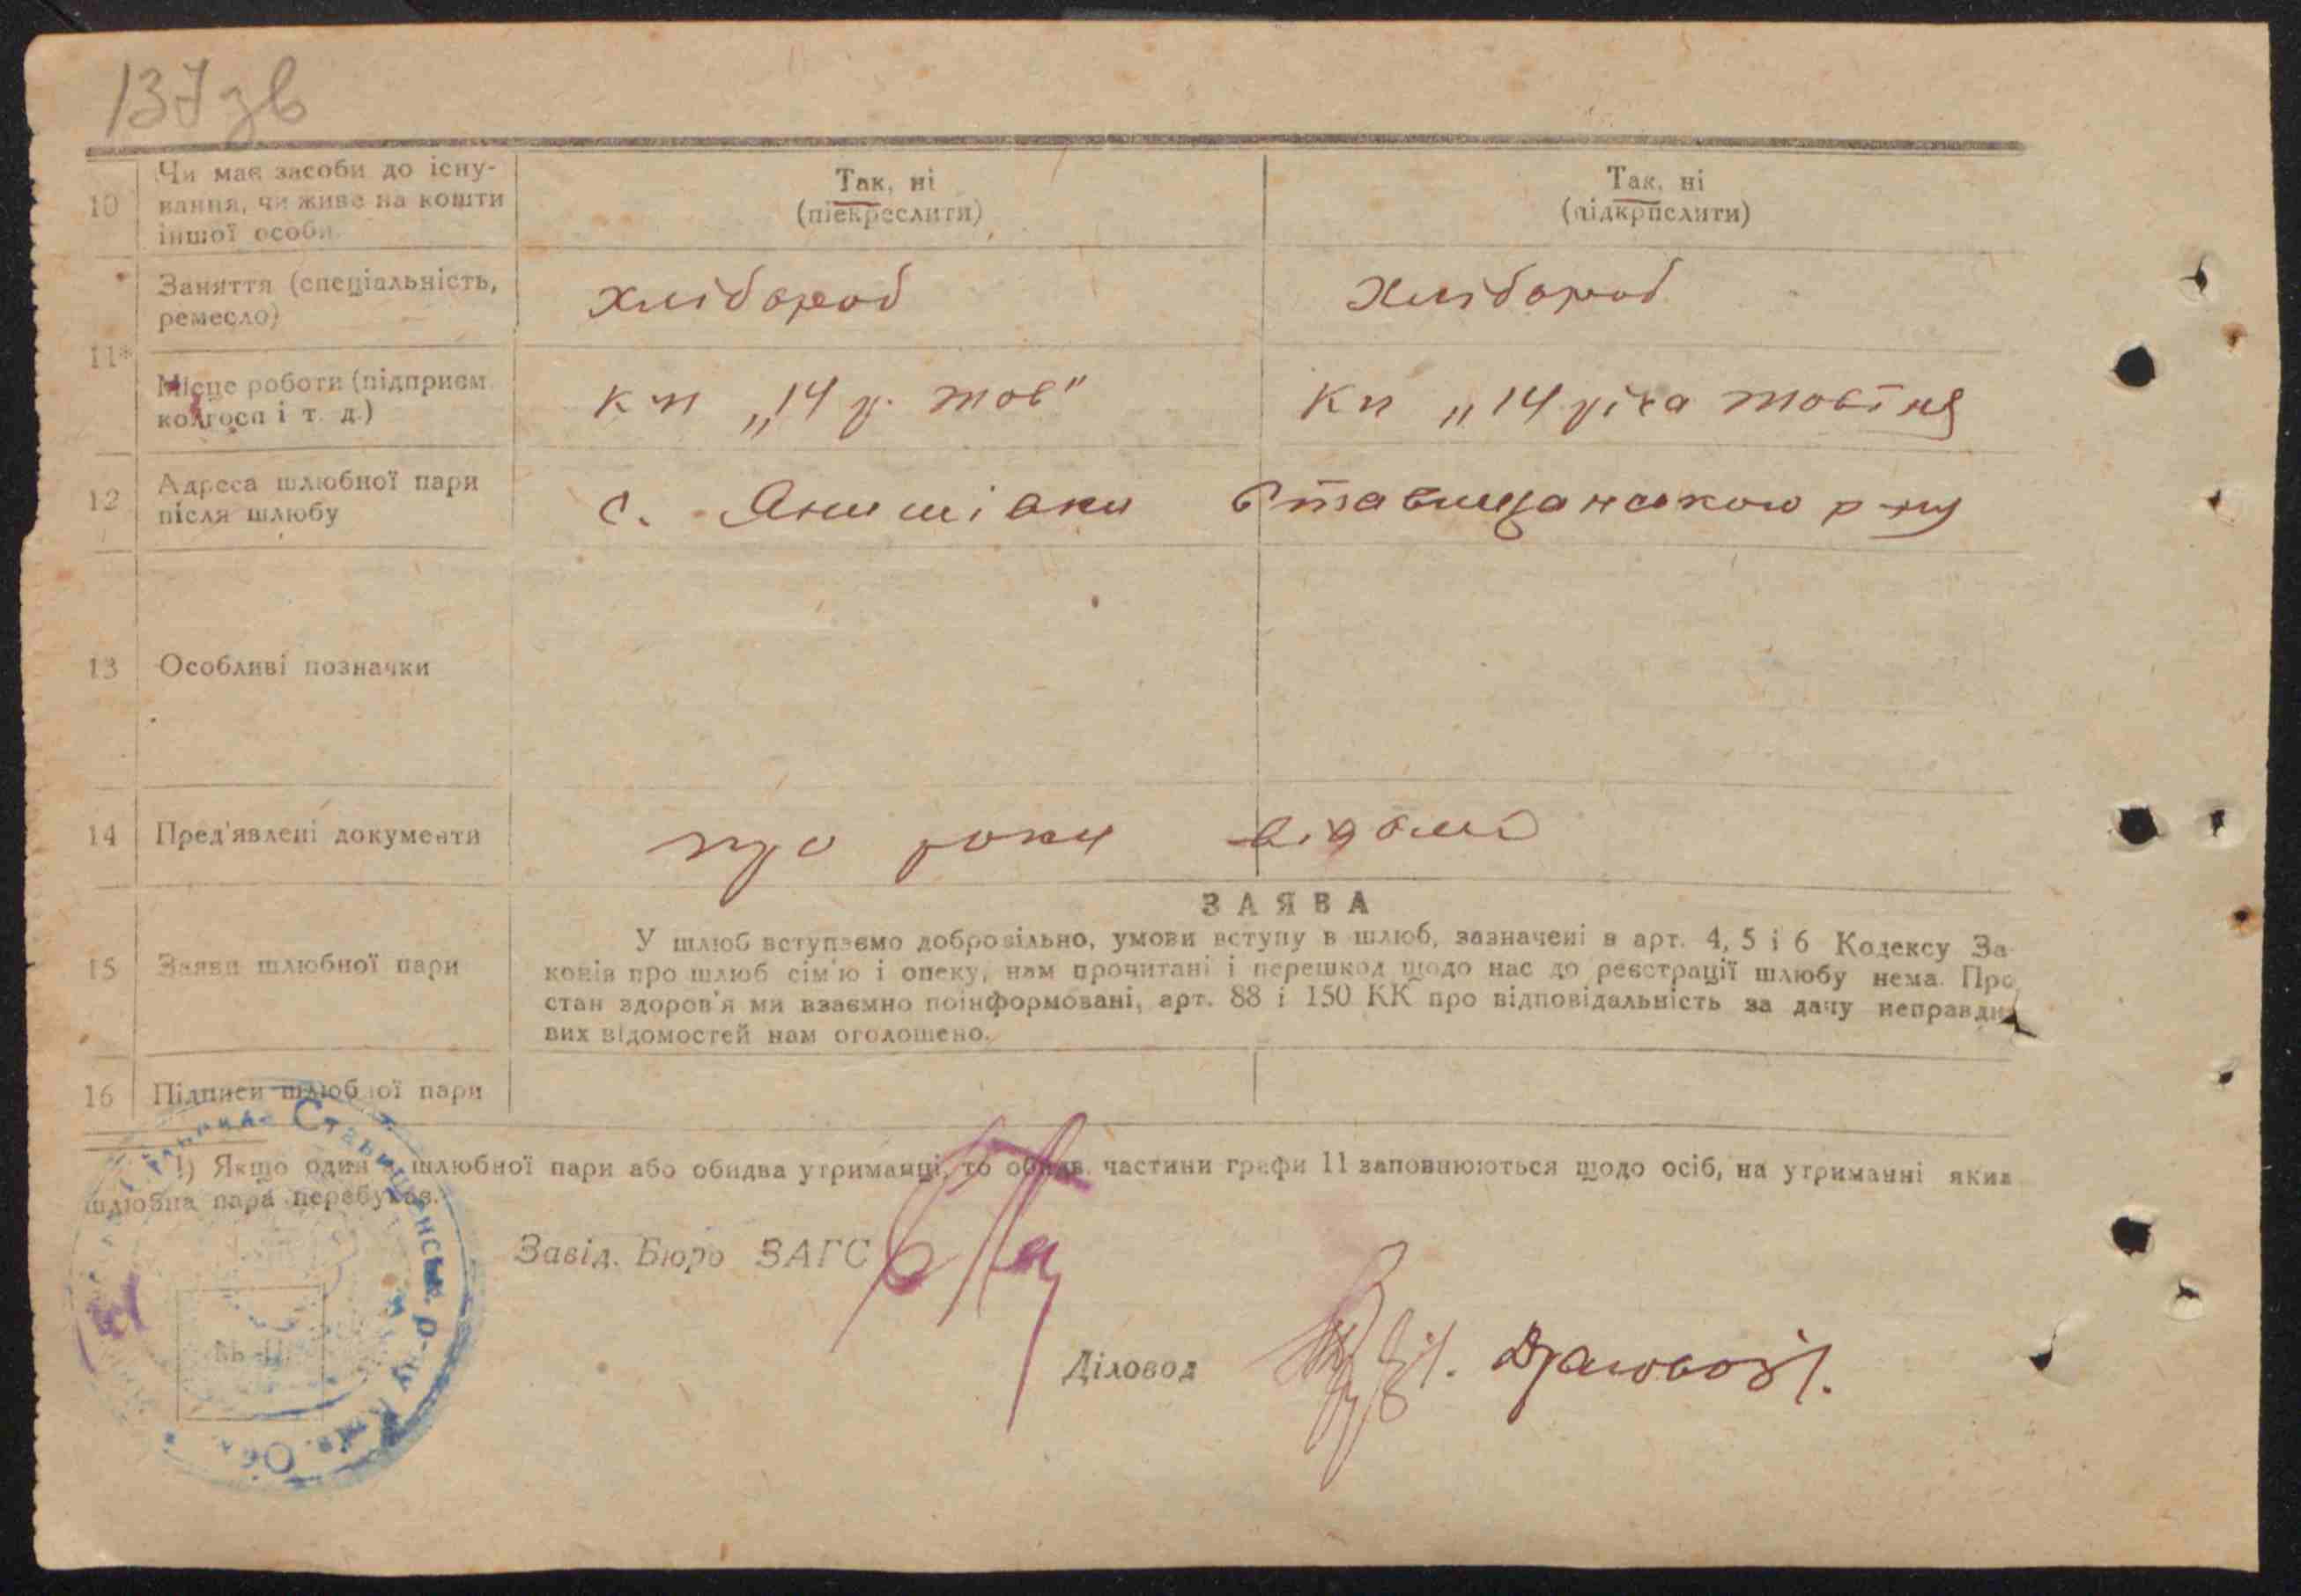 137 зв
10
Чи має засоби до існу-
вання, чи живе на кошти
іншої особи.
Так, ні
(піекреслити)
Так, ні
(підкрпслити)
11*
Заняття (спеціальність,
ремесло)
хлібороб
Хлібороб
Місце роботи (підприєм.
колгосп і т. д.)
кп „14 р. жов"
Кп „14 річа жовтня
12
Адреса шлюбної пари
після шлюбу
с. Янишівки Ставищанського р-ну
13
Особливі позначки
14
Пред'явлені документи
про роки відомі
15
Заяви шлюбної пари
ЗАЯВА
У шлюб вступаємо добровільно, умови вступу в шлюб, зазначені в арт. 4, 5 і 6 Кодексу За-
конів про шлюб сім'ю і опеку, нам прочитані і перешкод щодо нас до реєстрації шлюбу нема. Про
стан здоров'я ми взаємно поінформовані, арт. 88 і 150 КК про відповідальність за дачу неправди-
вих відомостей нам оголошено.
16
Підписи шлюбної пари
1) Якщо один з шлюбної пари або обидва утриманці, то обидв. частини графи 11 заповнюються щодо осіб, на утриманні яких
шлюбна пара перебуває.
Завід. Бюро ЗАГС
Діловод
Ставищанськ. р-ну Київ. Обл.